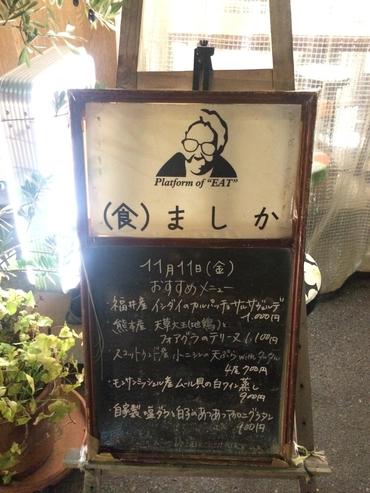 Platform of "EAT"
(食)ましか
11月11日(金)
おすすめメニュー
・福井産 インダイのカルパッチョ サルサヴェルデ
1,000円
・熊本産 天草大王(地鶏)と
フォアグラのテリーヌ 1,100円
・スコットランド産 小ニシンの天ぷら with タルタル
4尾 700円
・モンサンミッシェル産 ムール貝の白ワイン蒸し
900円
・自家製 塩ダラと白子のあつあつマカロニグラタン
900円